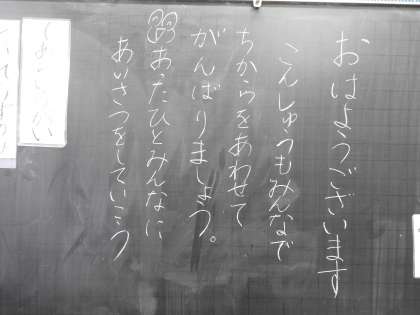 おはようございます
こんしゅうもみんなで
ちからをあわせて
がんばりましょう。
あったひとみんなに
あいさつをしていこう